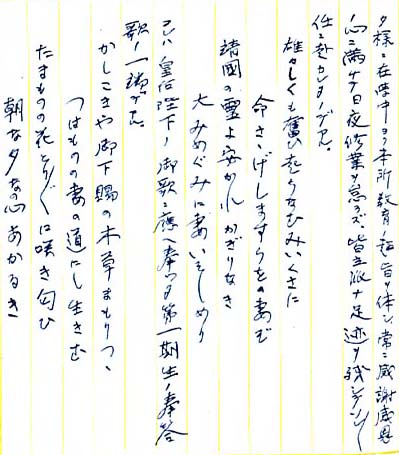 タ様ニ在學中ヨリ本所教育ノ趣旨ヲ体シ常ニ感謝感恩
ノ心ニ満サレ日夜修業ヲ怠ラズ、皆立派ナ足迹ヲ残シテ
任ニ赴カレタノデアル。
雄々しくも奮ひ起ちなむみいくさに
命さゝげしますらをの妻ぞ
靖國の霊よ安かれかぎりなき
大みめぐみに妻いそしめり
コレハ皇后陛下ノ御歌ニ應ヘ奉ツタ第一期生ノ奉答
歌ノ一端デアル。
かしこきや御下賜の木草まもりつゝ
つはものの妻の道にし生きむ
たまものの花とりどりに咲き匂ひ
朝な夕なの心あかるき